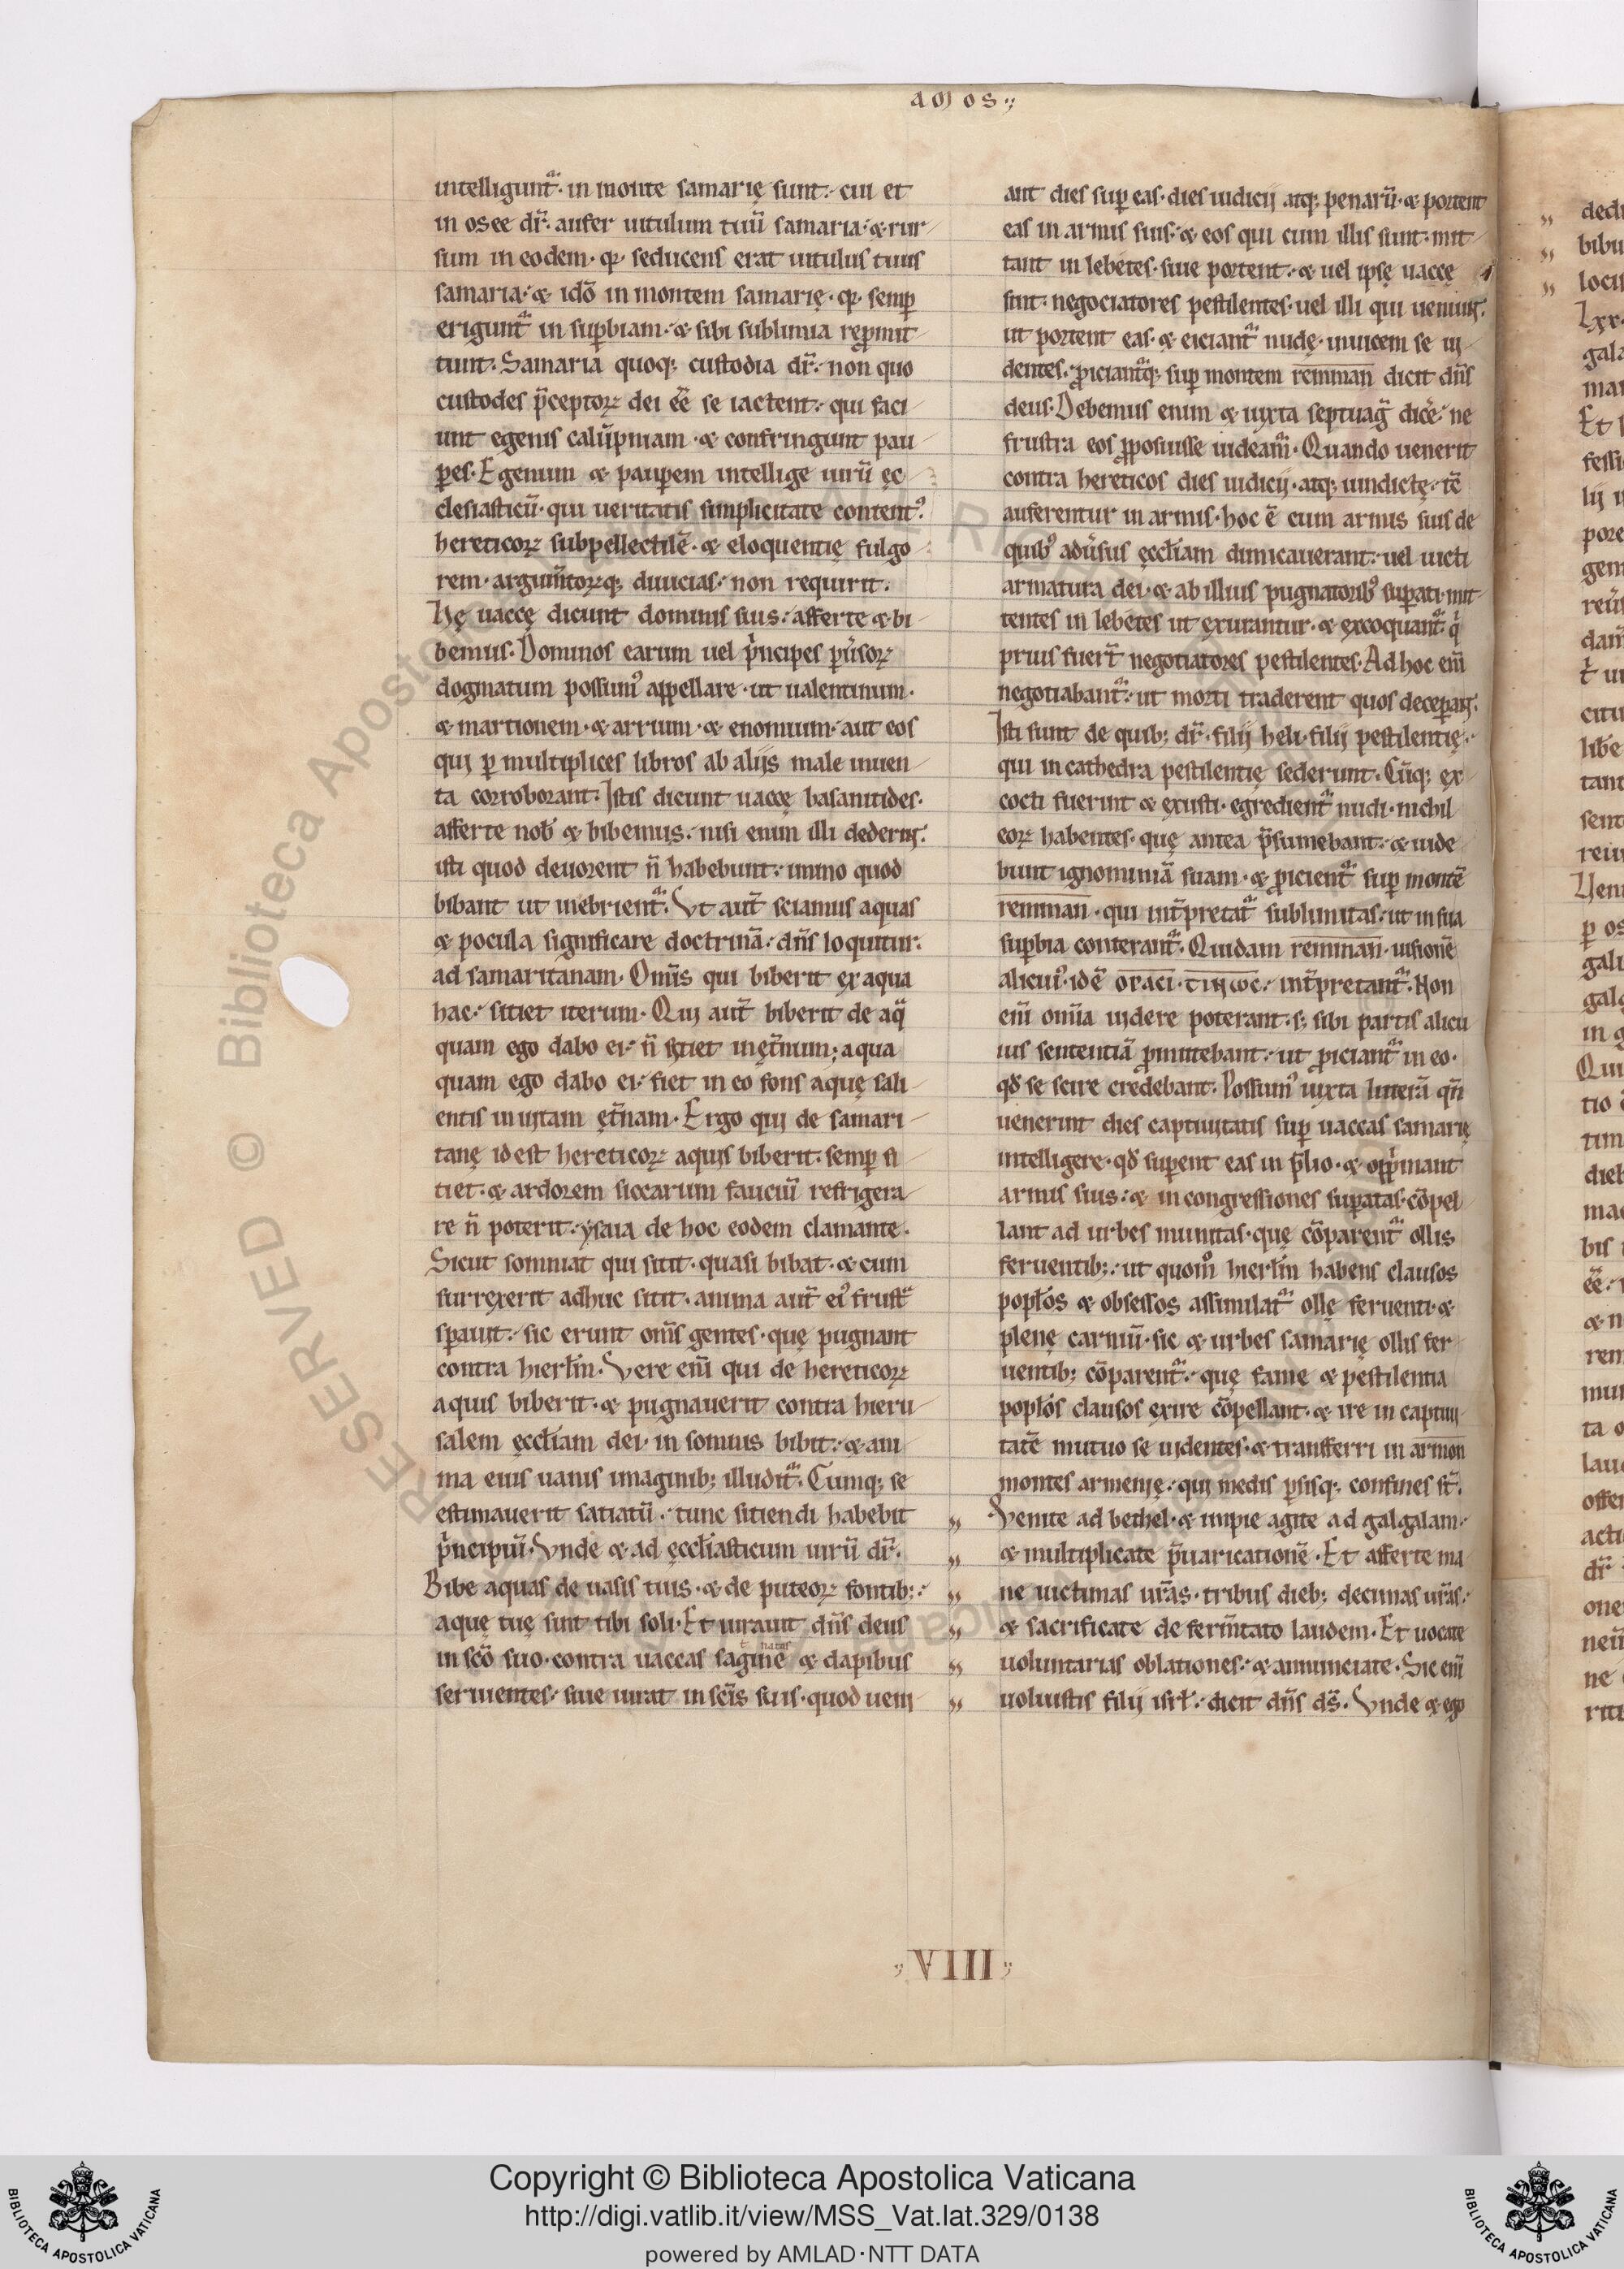 amos ;
intelligunt᷑· in monte samarię sunt· cui et
in osee dr̄· aufer uitulum tuū samaria· & rur-
sum in eodem· qꝛ seducens erat uitulus tuus
samaria· & idō in montem samarię· qꝛ semꝑ
erigunt᷑ in suꝑbiam· & sibi sublimia reꝓmit-
tunt· Samaria quoqꝫ custodia dr̄· non quo
custodes p̄ceptoꝝ dei eē se iactent· qui faci-
unt egenis calūpniam· & confringunt pau-
ꝑes· Egenum & pauꝑem intellige uirū ęc-
clesiasticū· qui ueritatis simplicitate contentꝰ·
hereticoꝝ subpellectilē· & eloquentię fulgo-
rem· argum̄toꝝqꝫ diuicias· non requirit·
Hę uaccę dicunt dominis suis· afferte & bi-
bemus· Dominos earum uel p̍ncipes ꝑu̍soꝝ
dogmatum possumꝰ appellare· ut ualentinum·
& martionem· & arrium· & enomium· aut eos
qui ꝑ multiplices libros ab aliis male inuen-
ta corroborant· Istis dicunt uaccę basanitides·
afferte nob̄ & bibemus· nisi enim illi dederint·
isti quod deuorent n̄ habebunt· immo quod
bibant ut inebrient᷑· Vt aut̄ sciamus aquas
& pocula significare doctrinā· dn̄s loquitur·
ad samaritanam· Omīs qui biberit ex aqua
hac· sitiet iterum· Qui aut̄ biberit de aq̈
quam ego dabo ei· n̄ sitiet inęt̄num; aqua
quam ego dabo ei· fiet in eo fons aquę sali-
entis in uitam ęt̄nam· Ergo qui de samari-
tanę id est hereticoꝝ aquis biberit· semꝑ si-
tiet· & ardorem siccarum fauciū refrigera-
re n̄ poterit· ysaia de hoc eodem clamante·
Sicut somniat qui sitit· quasi bibat· & cum
surrexerit adhuc sitit· anima aut̄ eiꝰ frustᵃ
sꝑauit· sic erunt omīs gentes· quę pugnant
contra hierlm̄· Vere eni̅ qui de hereticoꝝ
aquis biberit· & pugnauerit contra hieru-
salem ęccl̄iam dei· in somnis bibit· & ani-
ma eius uanis imaginibꝫ illudit᷑· Cumqꝫ se
estimauerit satiatū· tunc sitiendi habebit
p̍ncipiū· Vnde & ad ęccl̄iasticum uirū dr̄·
Bibe aquas de uasis tuis· & de puteoꝝ fontibꝫ·
aquę tuę sint tibi soli· Et iurauit dn̄s deus
in scō suo· contra uaccas sagine & dapibus
seruientes· siue iurat in scīs suis· quod ueni-
ant dies suꝑ eas· dies iudicii atqꝫ penarū· & portent
eas in armis suis· & eos qui cum illis sunt· mit-
tant in lebetes· siue portent· & uel ipsę uaccę
sint· negociatores pestilentes· uel illi qui ueniunt·
ut portent eas· & eiciant᷑ nudę· inuicem se ui-
dentes· ꝓiciant᷑qꝫ suꝑ montem remman dicit dn̄s
deus· Debemus enim & iuxta septuag̅ dicē· ne
frustra eos ꝓposuisse uideam᷑· Quando uenerit
contra hereticos dies iudicii· atqꝫ uindictę· tc̄
auferentur in armis· hoc ē cum armis suis de
quibꝰ adu̍sus ęccl̄iam dimicauerant· uel uicti
armatura dei· & ab illius pugnatoribꝰ suꝑati· mit-
tentes in lebetes ut exurantur· & excoquant᷑ q̍
prius fuer̄t negotiatores pestilentes· Ad hoc eni̅
negotiabant᷑· ut morti traderent quos deceꝑant·
Isti sunt de quibꝫ dr̄· filii heli· filii pestilentię·
qui in cathedra pestilentię sederunt· Cūqꝫ ex-
cocti fuerint & exusti· egredient᷑ nudi· nichil
eoꝝ habentes· quę antea p̄sumebant· & uide-
bunt ignominiā suam· & ꝓicient᷑ suꝑ montē
remman· qui int̄pretat᷑ sublimitas· ut in sua
suꝑbia conterant᷑· Quidam remman· uisionē
alicuiꝰ· idē oraci· int̄pretant᷑· Non
eni̅ omīa uidere poterant· s; sibi partis alicu-
ius sententiā ꝓmittebant· ut ꝓiciant᷑ in eo·
qd̄ se scire credebant· Possumꝰ iuxta litterā qn̄
uenerint dies captiuitatis suꝑ uaccas samarię
intelligere· qd̄ suꝑent eas in p̄lio· & opp̍mant
armis suis· & in congressiones suꝑatas· cōpel-
lant ad urbes munitas· quę cōparent᷑ ollis
feruentibꝫ· ut quomͦ hierlm̄ habens clausos
popl̄os & obsessos assimilat᷑ ollę feruenti· &
plenę carniū· sic & urbes samarię ollis fer-
uentibꝫ cōparent᷑· quę fame & pestilentia
popl̄os clausos exire cōpellant· & ire in captiui-
tatē mutuo se uidentes· & transferri in armon
montes armenię· qui medis ꝑsisqꝫ confines st̄·
„ Venite ad bethel· & impie agite ad galgalam·
„ & multiplicate p̄uaricationē· Et afferte ma-
„ ne uictimas ur̄as· tribus diebꝫ decimas ur̄as·
„ & sacrificate de ferm̄tato laudem· Et uocate
„ uoluntarias oblationes· & annunciate· Sic eni̅
„ uoluistis filii isrl̄· dicit dn̄s ds̄· Vnde & ego
VIII
Copyright © Biblioteca Apostolica Vaticana
http://digi.vatlib.it/view/MSS_Vat.lat.329/0138
powered by AMLAD·NTT DATA
BIBLIOTECA APOSTOLICA VATICANA
BIBLIOTECA APOSTOLICA VATICANA